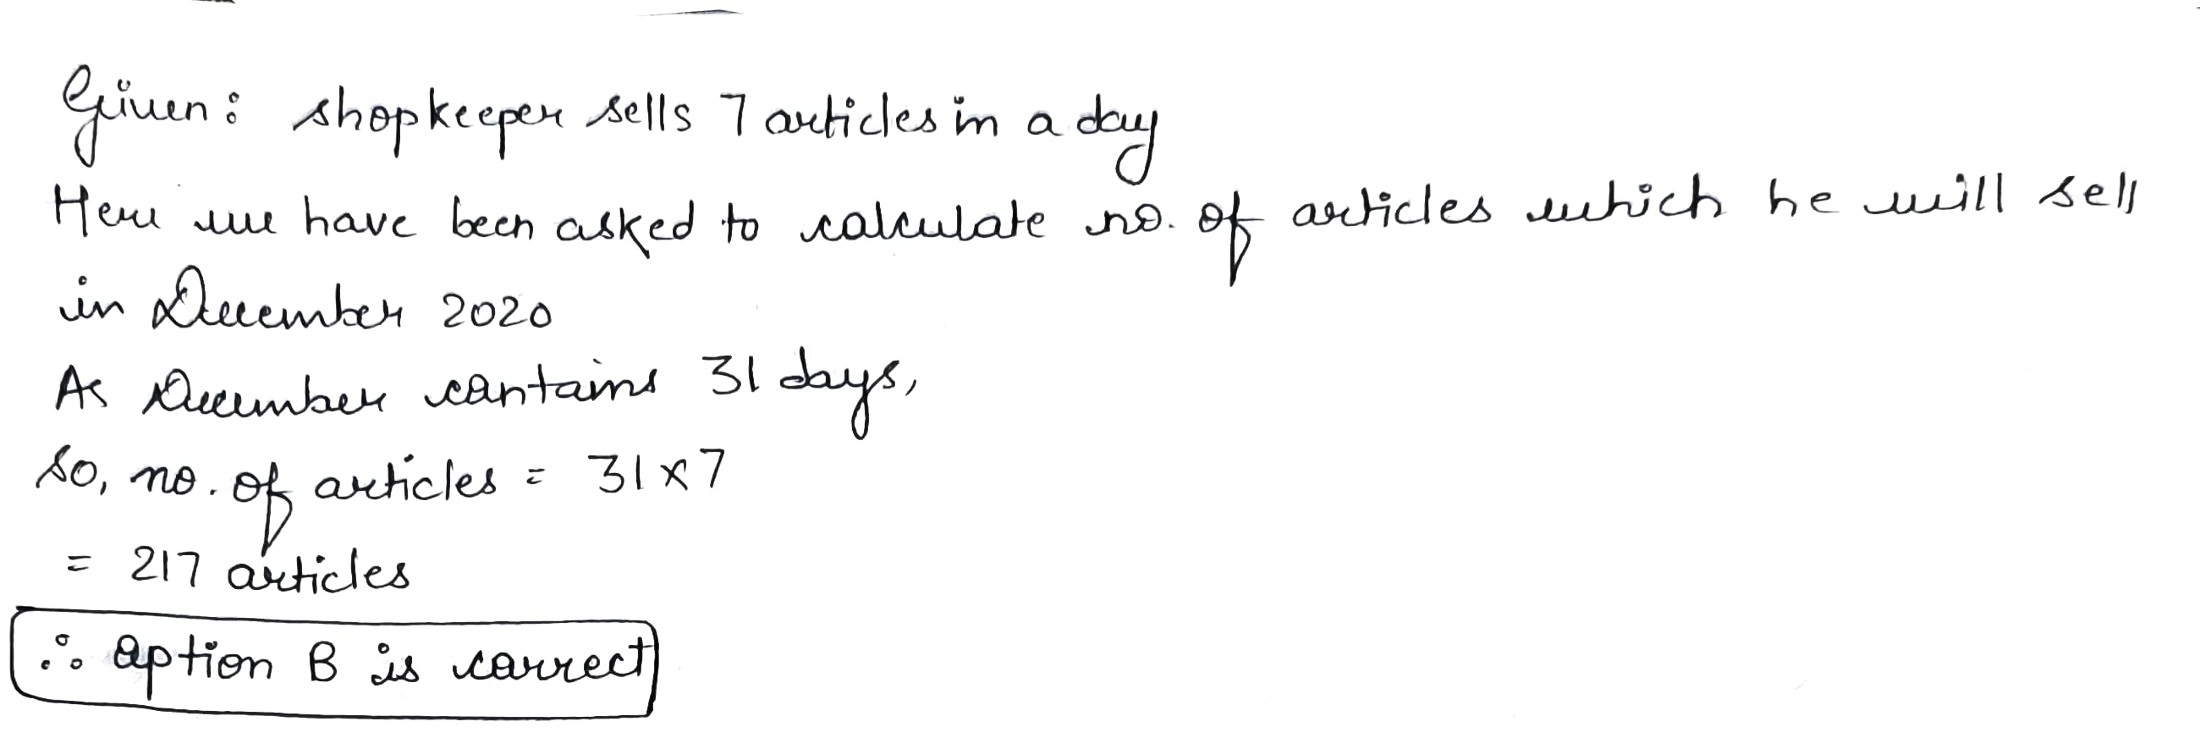 Given: shopkeeper sells 7 articles in a day
Here we have been asked to calculate no. of articles which he will sell
in December 2020
As December contains 31 days,
So, no. of articles = 31 × 7
= 217 articles
∴ option B is correct